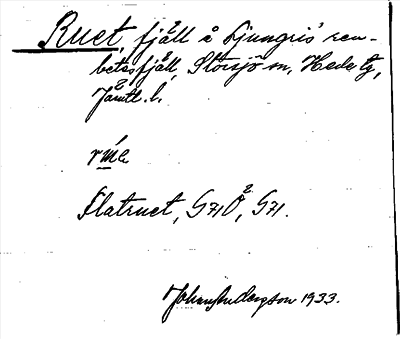 Ruet, fjäll å Ljungris' ren-
betesfjäll, Storsjö sn, Hede tg,
Jämtl. l.
Flatruet, G71Ö, G71.
Johan Anderzson 1933.